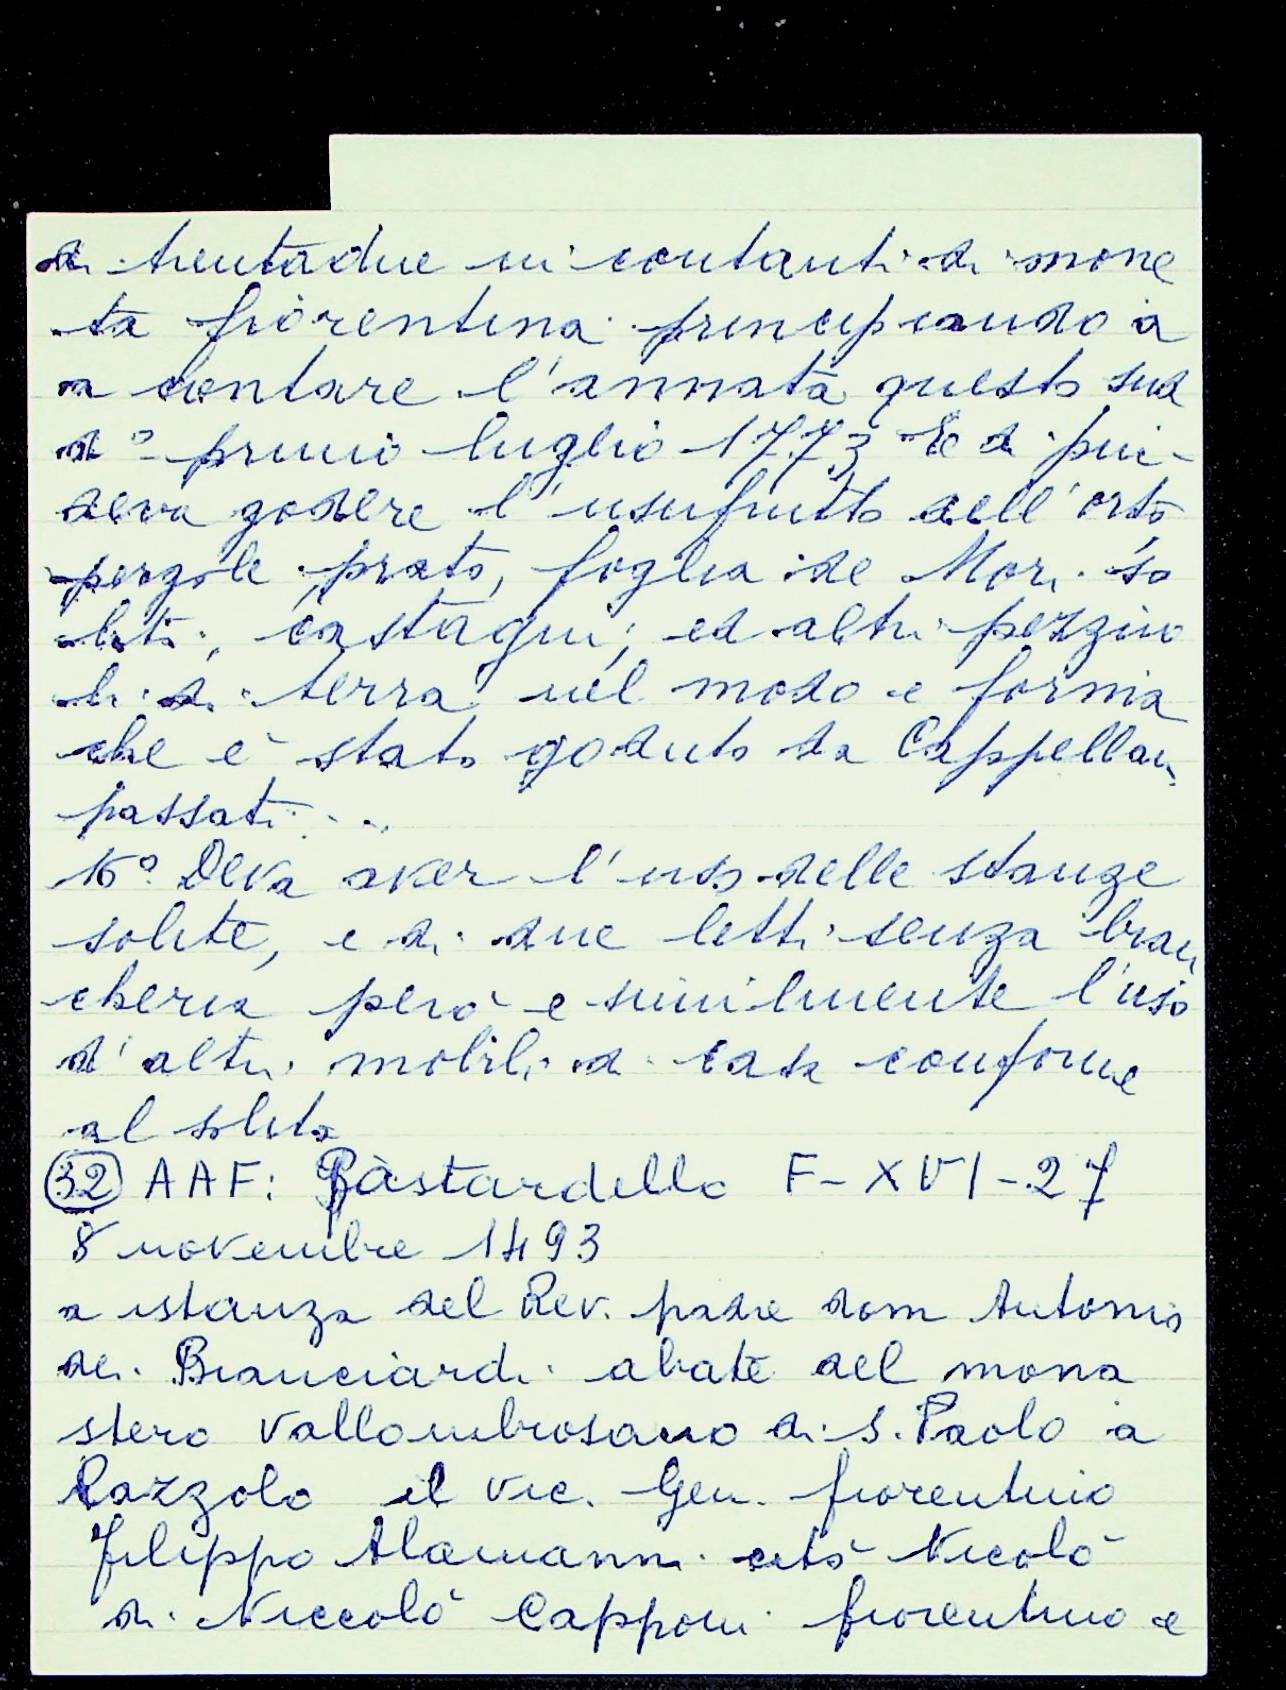 di trentadue in contanti di mone
ta fiorentina principiando a
a contare l'annata questo sud
d° primo luglio 1773 E di più -
deva godere l'usufrutto dell'orto
pergole, prato, foglia de Mori so
liti, castagni, ed altri pezzuo
li di terra nel modo e forma
che è stato goduto da Cappellani
passati ...
16° Deva aver l'uso delle stanze
solite, e di due letti senza bian
cheria però e similmente l'uso
d'altri mobili di casa conforme
al solito
32 AAF: Bastardello F-XVI-27
8 novembre 1493
a istanza del Rev. padre dom Antonio
dei Bianciardi abate del mona
stero vallombrosano di S. Paolo a
Razzolo il vic. Gen. fiorentino
Filippo Alamanni cita Nicolò
di Niccolò Capponi fiorentino e